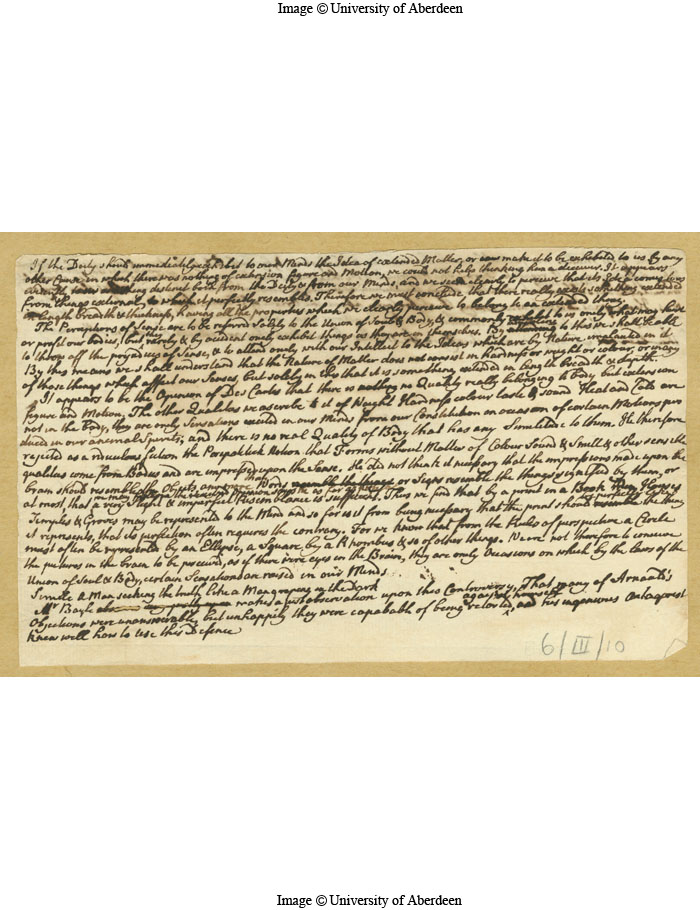 Image © University of Aberdeen
If the Deity should immediately exhibit to our Minds the Idea of extended Matter, or even make it to be exhibited to us by any
other Cause in which there was nothing of extension figure and Motion, we could not help thinking him a deceiver. It appears
evidently something distinct both from the Deity & from our Minds, and we seem clearly to perceive that its Idea comes to us
from things external, to which it perfectly resembles. Therefore we must conclude that there really exists something extended
in Length breadth & thickness, having all the properties which we clearly perceive to belong to an extended thing.
The Perceptions of Sense are to be referred solely to the Union of Soul & Body, & commonly exhibit to us only what may hurt
or profit our bodies, but rarely & by accident only exhibit things as they are in themselves. By attending to this we shall be able
to throw off the prejudices of Sense, & to attend only with our Intellect to the Ideas which are by Nature implanted in it
By this means we shall understand that the Nature of Matter does not consist in hardness or weight or colour, or in any
of those things which affect our Senses, but solely in this that it is something extended in Length Breadth & depth.
It appears to be the Opinion of Des Cartes that there is no Quality really belonging to Body but extension
figure and Motion. The other Qualities we ascribe to it of Weight Hardness colour taste & sound Heat and Cold are
not in the Body, they are only Sensations excited in our Minds from our Constitution on occasion of certain Motions pro
duced in our animal Spirits, and there is no real Quality of Body that has any Similitude to them. He therefore
rejected as a ridiculous fiction the Peripatetick Notion that Forms without Matter of Colour Sound & Smell & other sensible
qualities come from Bodies and are impressed upon the Sense. He did not think it necessary that the impressions made upon the
brain should resemble the Objects any more than Words or Signs resemble the things signified by them, or
at most, that a very slight & imperfect Resemblance is sufficient. Thus we find that by a print in a Book Men Houses
Temples & Groves may be represented to the Mind and so far is it from being necessary that the print should perfectly resemble the thing
it represents, that its perfection often requires the contrary. For we know that from the Rules of perspective a Circle
must often be represented by an Ellipse, a Square by a Rhombus & so of other things. We are not therefore to conceive
the pictures in the brain to be perceived, as if there were eyes in the Brain, they are only Occasions on which by the Laws of the
Union of Soul & Body, certain Sensations are raised in our Minds
Simile A Man seeking the truth like a Man groping in the Dark
Mr Bayle makes a just observation upon this Controversy, That many of Arnauld's
Objections were unanswerable, but unhappily they were capable of being retorted against himself, and his ingenious Antagonist
knew well how to use this Defence
6/III/10
Image © University of Aberdeen